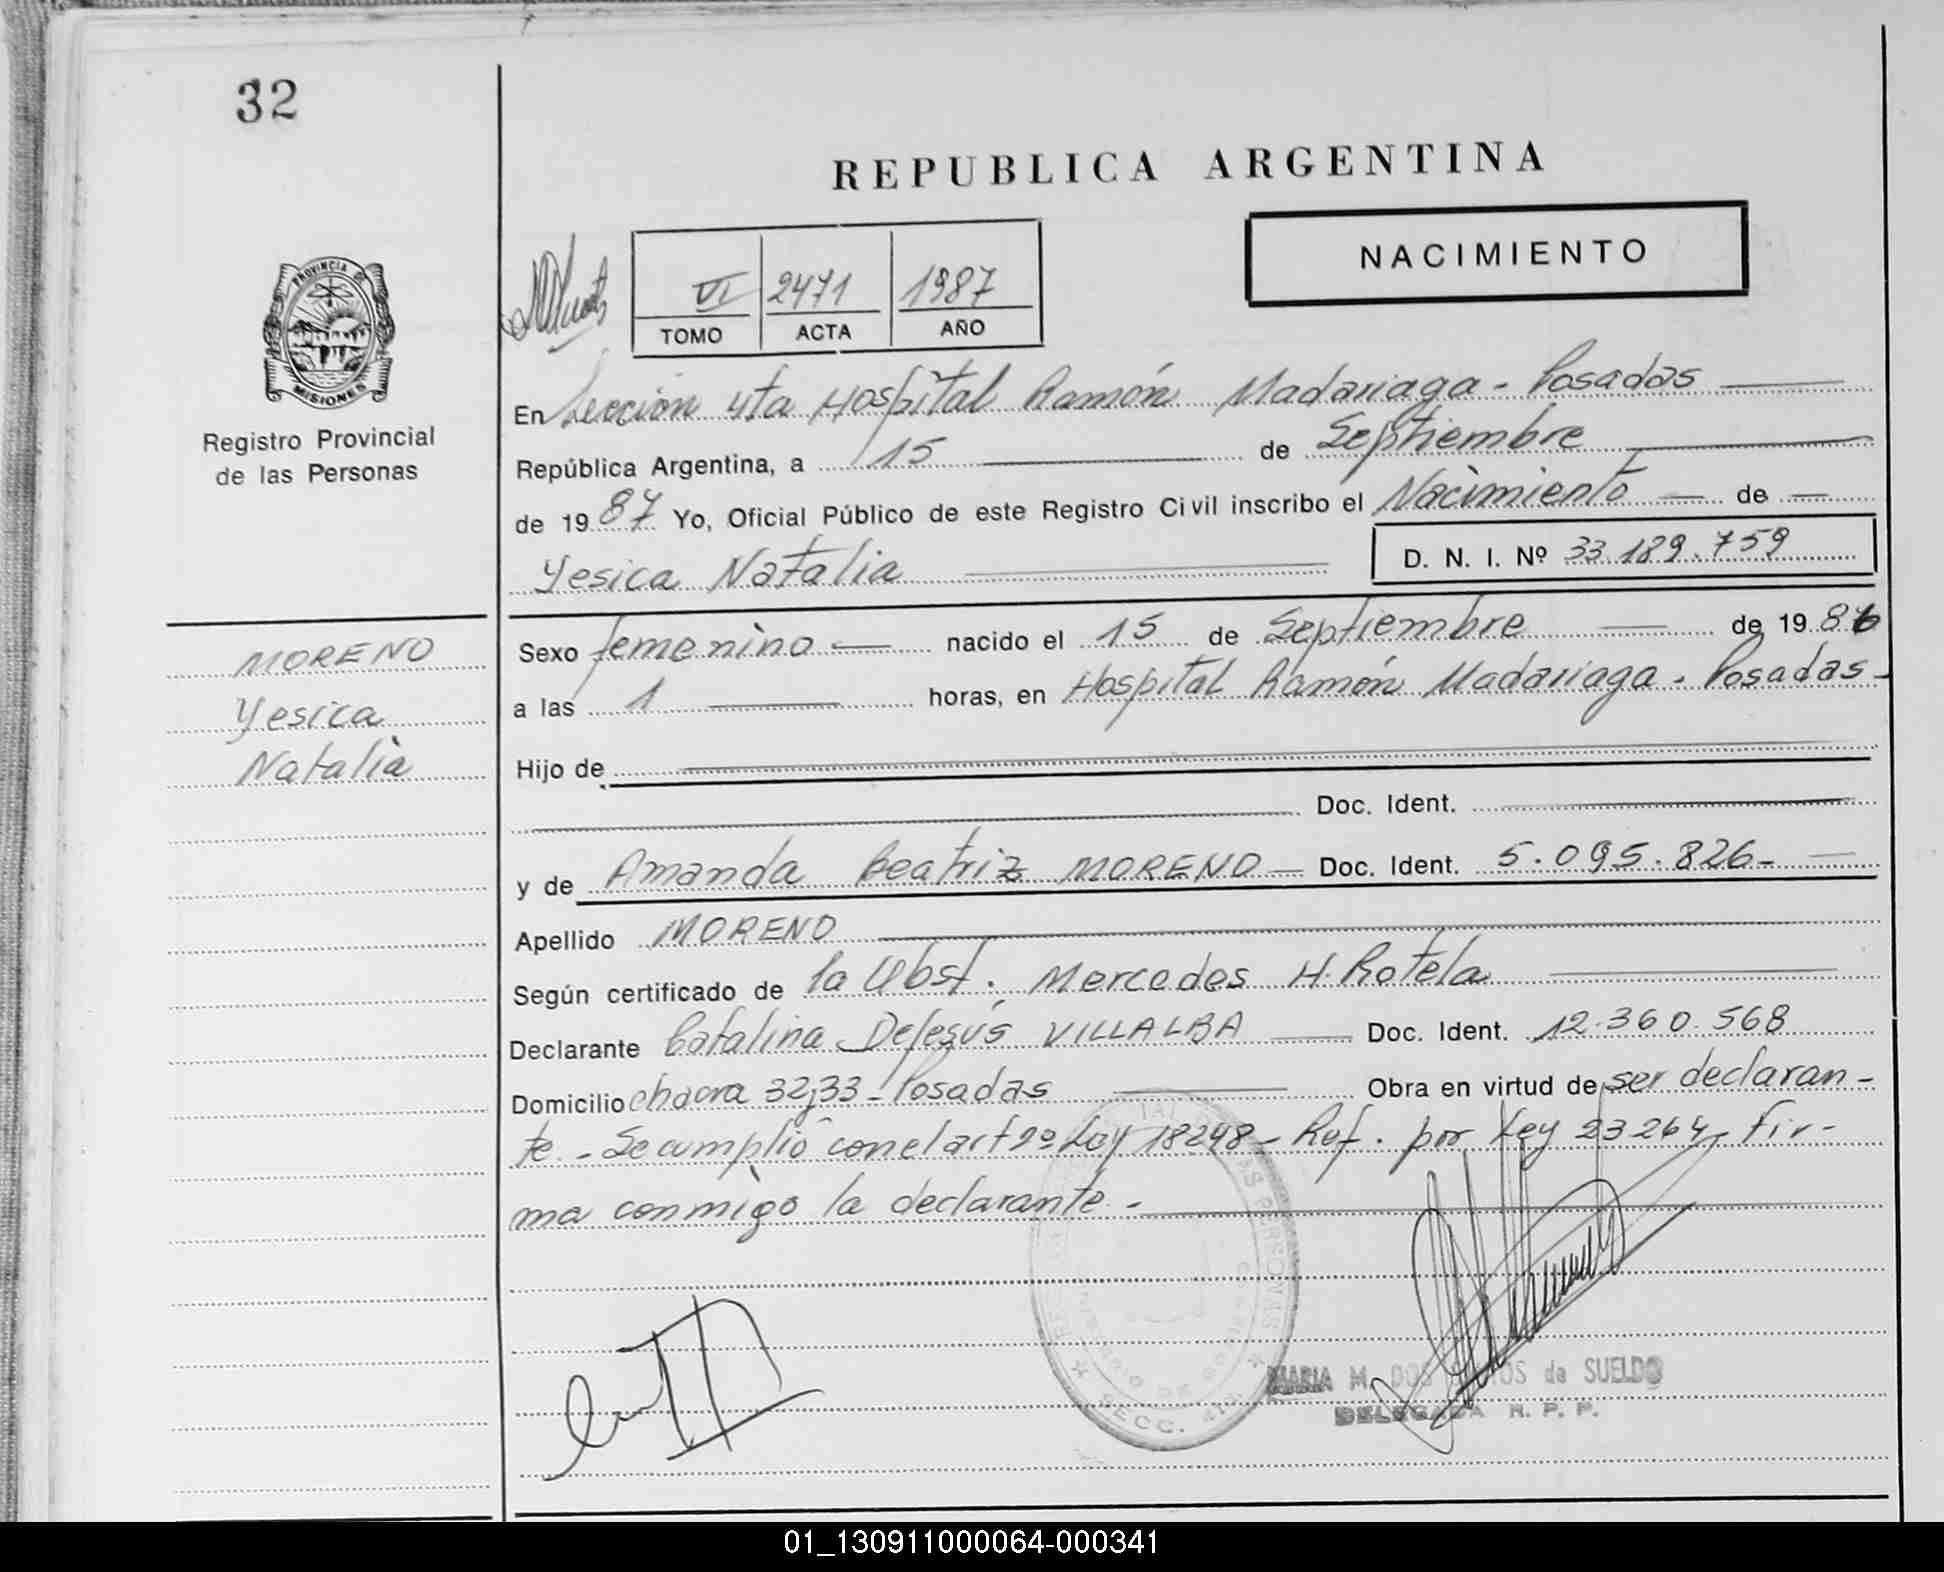 32
REPUBLICA ARGENTINA
NACIMIENTO
VI 2471 1987
TOMO ACTA AÑO
PROVINCIA DE
MISIONES
Registro Provincial
de las Personas
En Sección 4ta Hospital Ramón Madariaga - Posadas
República Argentina, a 15 de Septiembre
de 1987 Yo, Oficial Público de este Registro Civil inscribo el Nacimiento de
Yesica Natalia D. N. I. Nº 33.189.759
MORENO
Yesica
Natalia
Sexo femenino nacido el 15 de Septiembre de 198
a las 1 horas, en Hospital Ramón Madariaga - Posadas -
Hijo de
Doc. Ident.
y de Amanda Beatriz MORENO Doc. Ident. 5.095.826 -
Apellido MORENO
Según certificado de la Obst. Mercedes H. Rotela
Declarante Catalina DeJesús VILLALBA Doc. Ident. 12.360.568
Domicilio chacra 32,33 - Posadas Obra en virtud de ser declaran -
te - Se cumplió con el art 2º Ley 18248 - Ref. por Ley 23264 - Fir -
ma conmigo la declarante -
DE LAS PERSONAS
MINISTERIO DE GOBIERNO
SECC. 4ta.
MARIA M. DOS SANTOS de SUELDO
DELEGADA R. P. P.
01_130911000064-000341